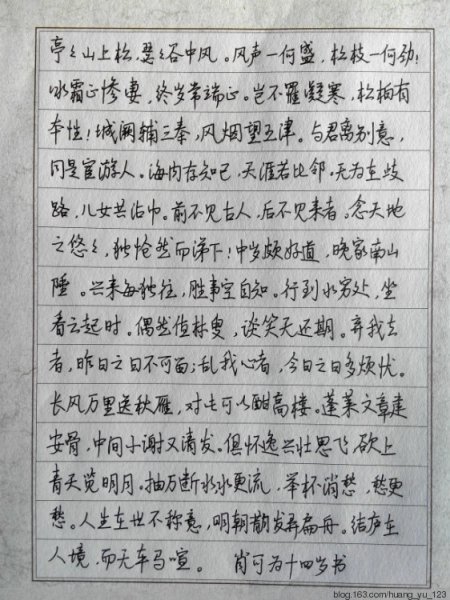 亭々山上松,瑟々谷中风。风声一何盛,松枝一何劲!
冰霜正惨凄,终岁常端正。岂不罹凝寒,松柏有
本性!城阙辅三秦,风烟望五津。与君离别意,
同是宦游人。海内存知己,天涯若比邻。无为在歧
路,儿女共沾巾。前不见古人,后不见来者。念天地
之悠々,独怆然而涕下!中岁颇好道,晚家南山
陲。兴来每独往,胜事空自知。行到水穷处,坐
看云起时。偶然值林叟,谈笑无还期。弃我去
者,昨日之日不可留;乱我心者,今日之日多烦忧。
长风万里送秋雁,对此可以酣高楼。蓬莱文章建
安骨,中间小谢又清发。俱怀逸兴壮思飞,欲上
青天览明月。抽刀断水水更流,举杯消愁,愁更
愁。人生在世不称意,明朝散发弄扁舟。结庐在
人境,而无车马喧。 肖可为十四岁书
blog.163.com/huang_yu_123